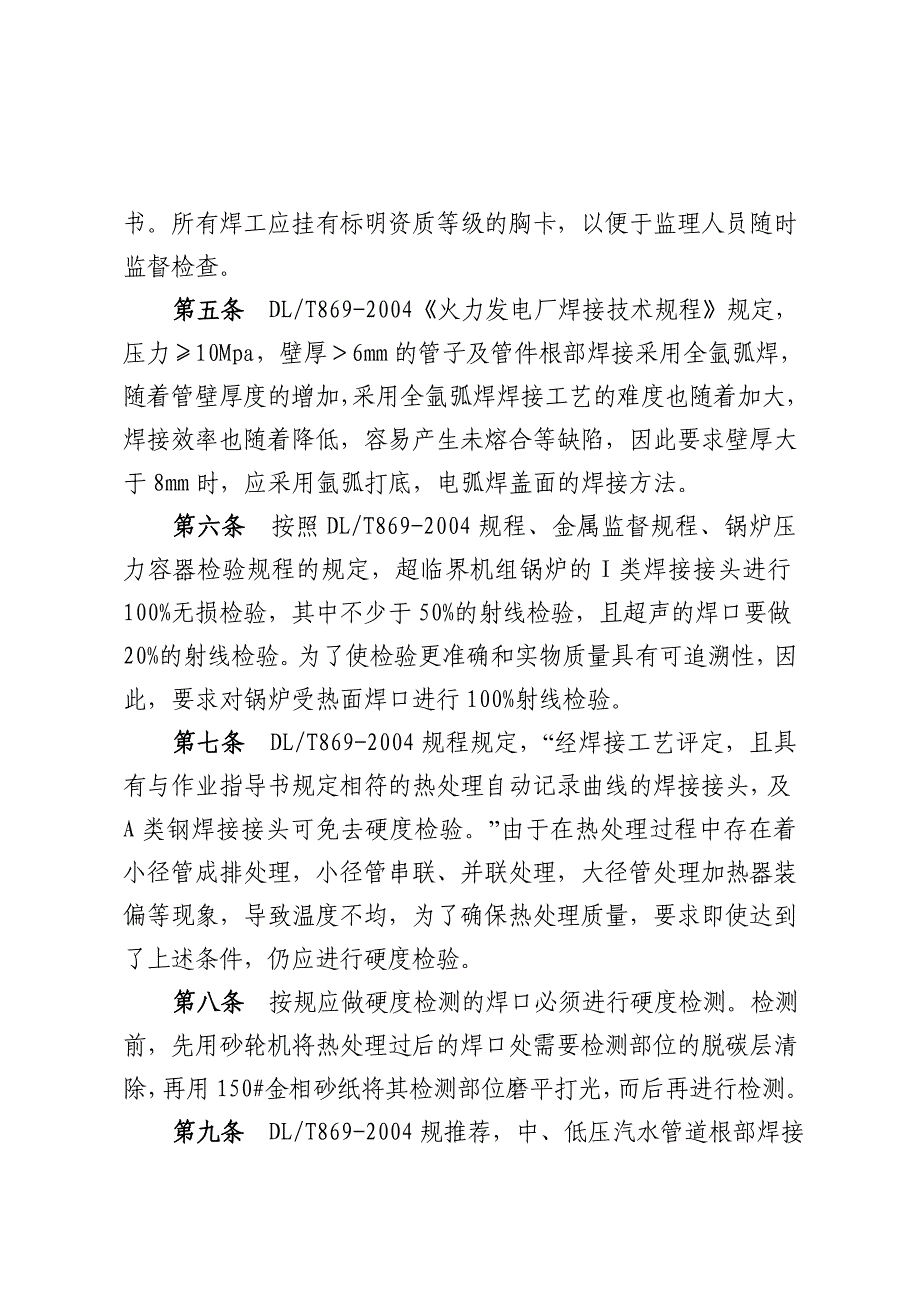 书。所有焊工应挂有标明资质等级的胸卡，以便于监理人员随时
监督检查。
第五条 DL/T869-2004《火力发电厂焊接技术规程》规定，
压力≥10Mpa，壁厚＞6mm的管子及管件根部焊接采用全氩弧焊，
随着管壁厚度的增加，采用全氩弧焊焊接工艺的难度也随着加大，
焊接效率也随着降低，容易产生未熔合等缺陷，因此要求壁厚大
于8mm时，应采用氩弧打底，电弧焊盖面的焊接方法。
第六条 按照DL/T869-2004规程、金属监督规程、锅炉压
力容器检验规程的规定，超临界机组锅炉的Ⅰ类焊接接头进行
100%无损检验，其中不少于50%的射线检验，且超声的焊口要做
20%的射线检验。为了使检验更准确和实物质量具有可追溯性，因
此，要求对锅炉受热面焊口进行100%射线检验。
第七条 DL/T869-2004规程规定，“经焊接工艺评定，且具
有与作业指导书规定相符的热处理自动记录曲线的焊接接头，及
A类钢焊接接头可免去硬度检验。”由于在热处理过程中存在着
小径管成排处理，小径管串联、并联处理，大径管处理加热器装
偏等现象，导致温度不均，为了确保热处理质量，要求即使达到
了上述条件，仍应进行硬度检验。
第八条 按规应做硬度检测的焊口必须进行硬度检测。检测
前，先用砂轮机将热处理过后的焊口处需要检测部位的脱碳层清
除，再用150#金相砂纸将其检测部位磨平打光，而后再进行检测。
第九条 DL/T869-2004规推荐，中、低压汽水管道根部焊接